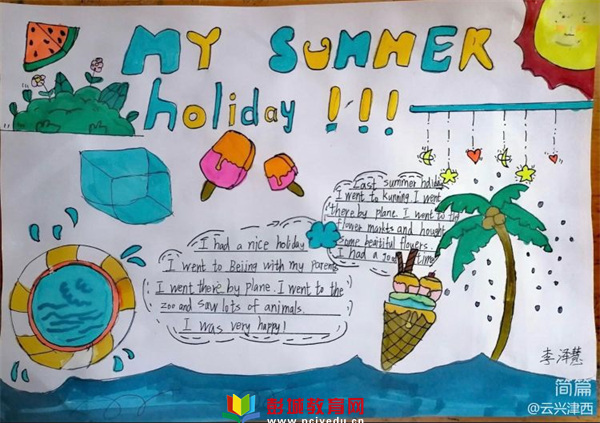 MY SUMMER
holiday !!!
Last summer holiday
I went to kunming I went
there by plane. I went to the
flower markts and bought
some beatiful flowers.
I had a time
I had a nice holiday
I went to Beijing with my parents
I went there by plane. I went to the
zoo and saw lots of animals.
I was very happy!
李泽慧
简篇
@云兴津西
彭城教育网
www.pcjyedu.cn